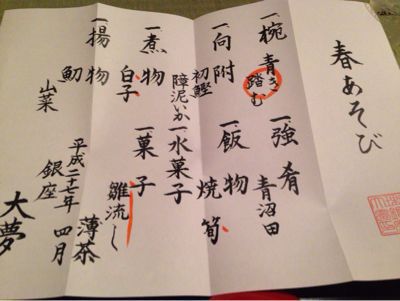 春あそび
一椀 青き踏む
一向附 初鰹
障泥いか
一煮物 白子
一揚物
山菜
一強肴 青沼田
一飯物 焼筍
一水菓子
一菓子 雛流し
薄茶
平成二十七年 四月
銀座
大夢